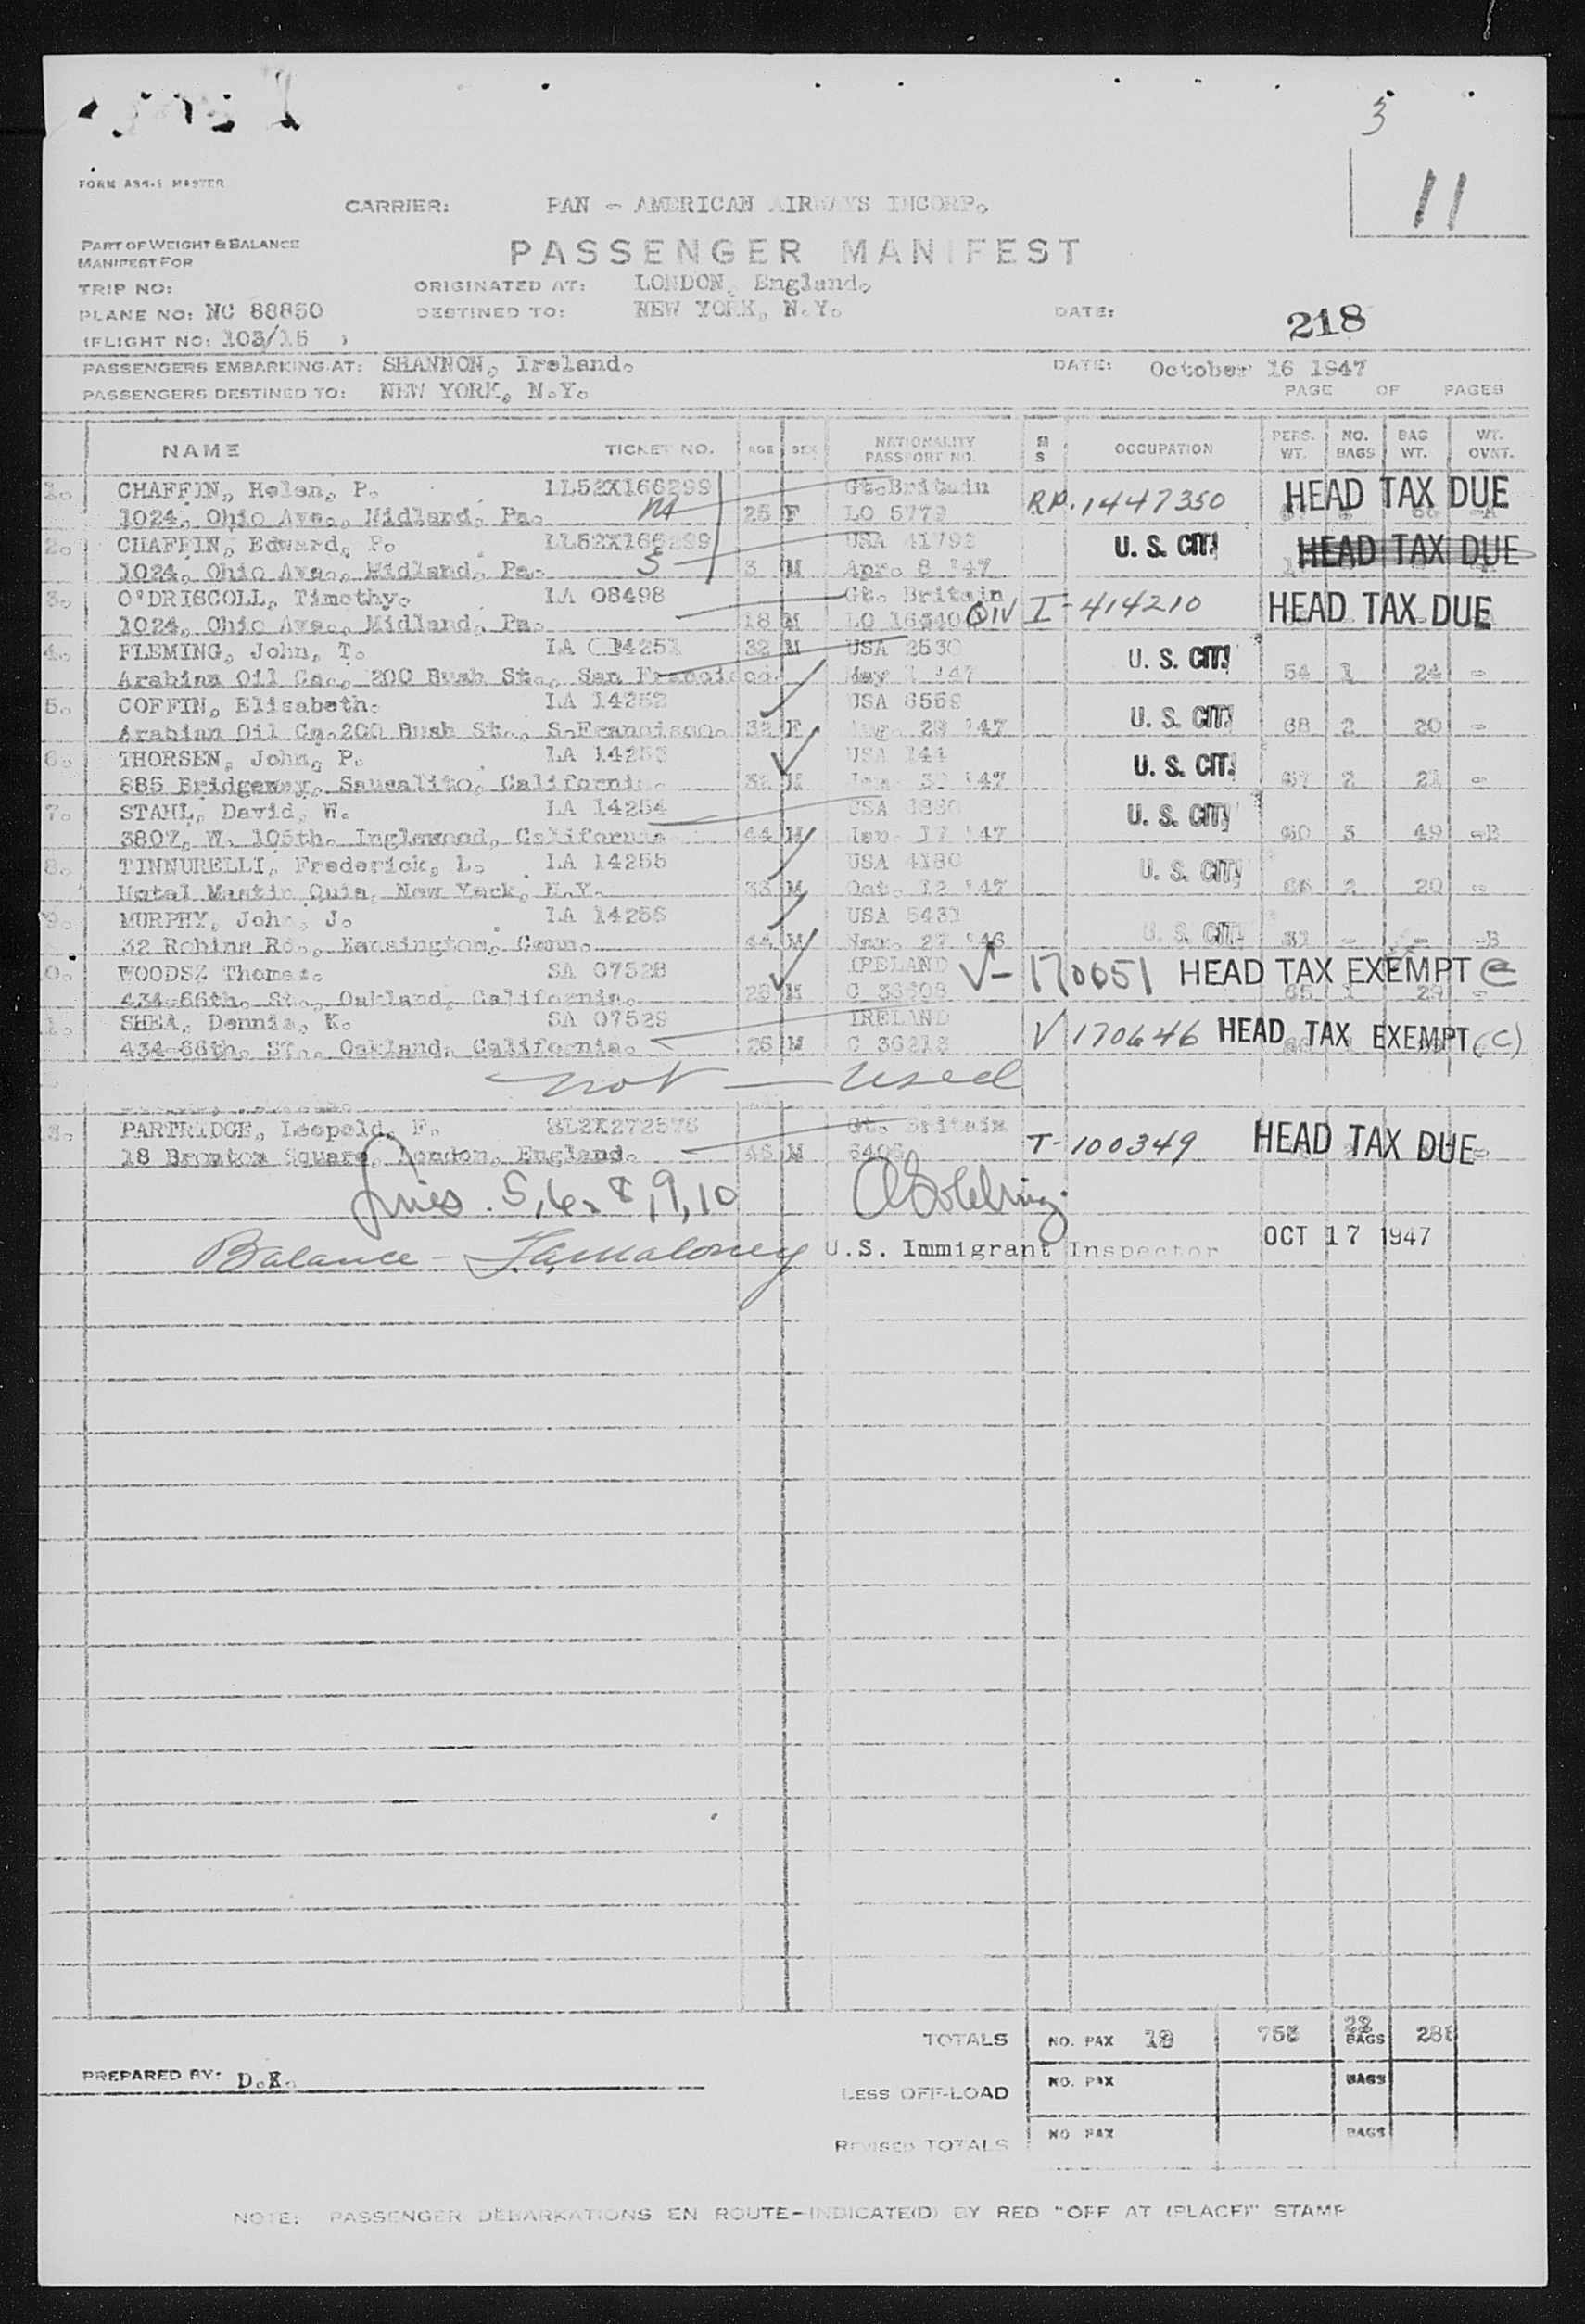 3
11
FORM A34-1 MASTER
CARRIER: PAN - AMERICAN AIRWAYS INCORP.
PART OF WEIGHT & BALANCE
MANIFEST FOR
PASSENGER MANIFEST
TRIP NO: ORIGINATED AT: LONDON, England.
PLANE NO: NC 88850 DESTINED TO: NEW YORK, N.Y. DATE:
218
(FLIGHT NO: 103/15 )
PASSENGERS EMBARKING AT: SHANNON, Ireland. DATE: October 16 1947
PASSENGERS DESTINED TO: NEW YORK, N.Y. PAGE OF PAGES
NAME TICKET NO. AGE SEX NATIONALITY PASSPORT NO. M S OCCUPATION PERS. WT. NO. BAGS BAG WT. WT. OVNT.
1. CHAFFIN, Helen, P. LL52X166299 Gt.Britain
1024, Ohio Ave., Midland, Pa. M 25 F LO 5779 RP. 1447350 HEAD TAX DUE
2. CHAFFIN, Edward, P. LL52X166299 USA 41792 U. S. CIT. HEAD TAX DUE
1024, Ohio Ave., Midland, Pa. S 3 M Apr. 8 '47
3. O'DRISCOLL, Timothy. LA 08498 Gt. Britain
1024, Ohio Ave., Midland, Pa. 18 M LO QIV I-414210 HEAD TAX DUE
4. FLEMING, John, T. LA 14251 32 M USA 2530 U. S. CIT.
Arabian Oil Co., 200 Bush St., San Francisco. May 1 '47 54 1 24 -
5. COFFIN, Elisabeth. LA 14252 USA 6569 U. S. CIT.
Arabian Oil Co. 200 Bush St., S.Francisco. F Aug. 29 '47 68 2 20 -
6. THORSEN, John, P. LA 14253 USA U. S. CIT.
885 Bridgeway, Sausalito, California. M '47 2 21 -
7. STAHL, David, W. LA 14254 USA U. S. CIT.
3807, W. 105th. Inglewood, California 44 M Jan. 17 '47 60 3 49 -B
8. TINNURELLI, Frederick, L. LA 14255 USA 4180 U. S. CIT.
Hotel New York, N.Y. 33 M Oct. 12 '47 2 20 -
9. MURPHY, John, J. LA 14256 USA U. S. CIT.
32 Robins Rd., Kensington, Conn. 44 M Nov. 27 '46 - - -B
0. WOODS, Thomas. SA 07528 IRELAND V-170651 HEAD TAX EXEMPT C
434-66th. St., Oakland, California. M C
1. SHEA, Dennis, K. SA 07529 IRELAND
434-66th. ST., Oakland, California. 26 M C 36213 V 170646 HEAD TAX EXEMPT (C)
not — used
3. PARTRIDGE, Leopold, F. Gt. Britain
18 Bromton Square, London, England. M T-100349 HEAD TAX DUE
Lines. 5, 6, 8, 9, 10
Balance - U.S. Immigrant Inspector OCT 17 1947
TOTALS NO. PAX 22 BAGS
PREPARED BY: D.K.
LESS OFF-LOAD NO. PAX BAGS
REVISED TOTALS NO PAX BAGS
NOTE: PASSENGER DEBARKATIONS EN ROUTE-INDICATE(D) BY RED "OFF AT (PLACE)" STAMP